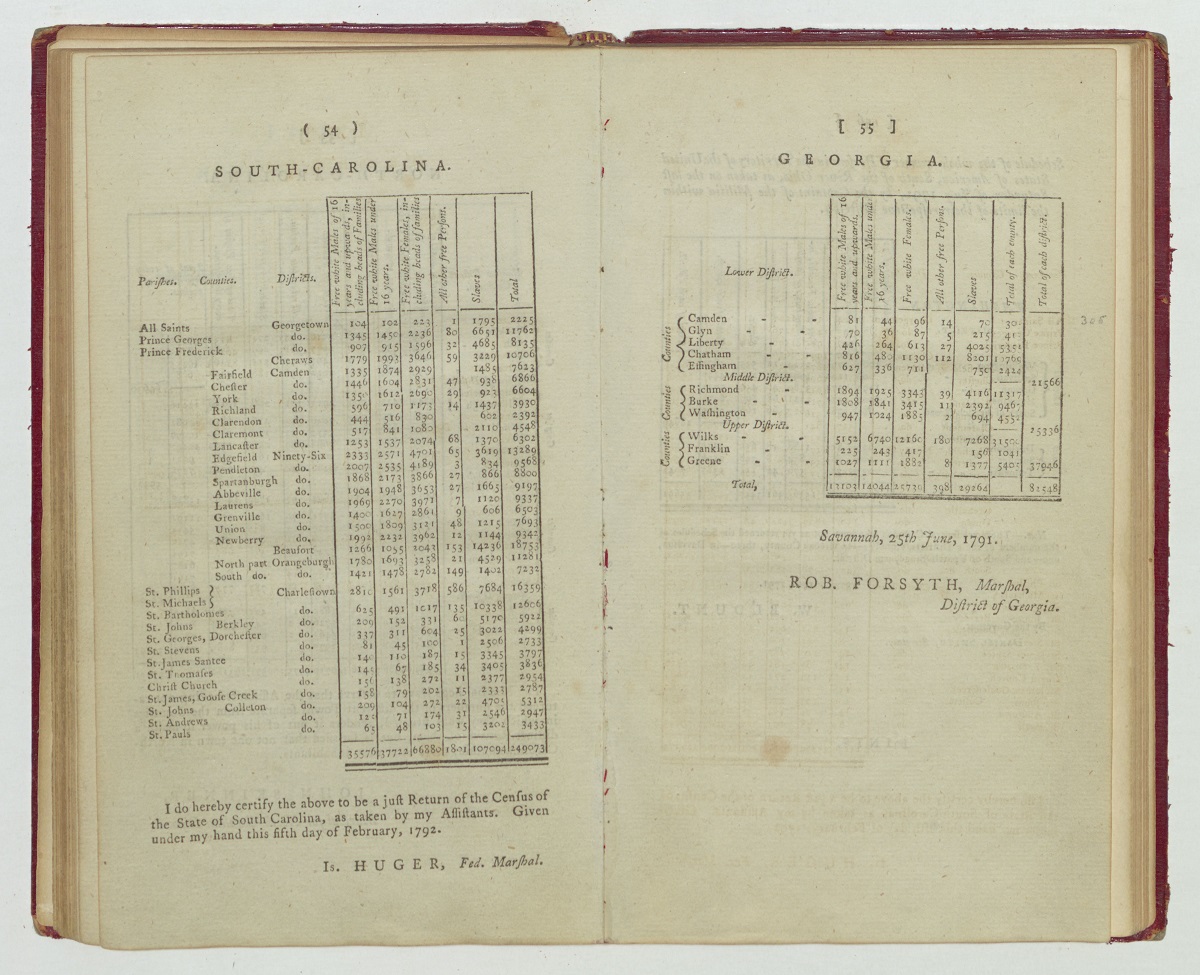 ( 54 )
SOUTH-CAROLINA.
Parishes. Counties. Districts. Free white Males of 16 years and upwards, including heads of Families Free white Males under 16 years. Free white Females, including heads of families All other free Persons. Slaves Total
All Saints Georgetown 104 102 223 1 1795 2225
Prince Georges do. 1345 1450 2236 80 6651 11762
Prince Frederick do. 907 915 1596 32 4685 8135
Cheraws 1779 1993 3646 59 3229 10706
Fairfield Camden 1335 1874 2929 1485 7623
Chester do. 1446 1604 2831 47 938 6866
York do. 1350 1612 2690 29 923 6604
Richland do. 596 710 1173 14 1437 3930
Clarendon do. 444 516 830 602 2392
Claremont do. 517 841 1080 2110 4548
Lancaster do. 1253 1537 2074 68 1370 6302
Edgefield Ninety-Six 2333 2571 4701 65 3619 13289
Pendleton do. 2007 2535 4189 3 834 9568
Spartanburgh do. 1868 2173 3866 27 866 8800
Abbeville do. 1904 1948 3653 27 1665 9197
Laurens do. 1969 2270 3971 7 1120 9337
Grenville do. 1400 1627 2861 9 606 6503
Union do. 1500 1809 3121 48 1215 7693
Newberry do. 1992 2232 3962 12 1144 9342
Beaufort 1266 1055 2043 153 14236 18753
North part Orangeburgh 1780 1693 3258 21 4529 11281
South do. do. 1421 1478 2782 149 1402 7232
St. Phillips }
St. Michaels } Charlestown 2810 1561 3718 586 7684 16359
St. Bartholomes do. 625 491 1017 135 10338 12606
St. Johns Berkley do. 209 152 331 60 5170 5922
St. Georges, Dorchester do. 337 311 604 25 3022 4299
St. Stevens do. 81 45 100 1 2506 2733
St. James Santee do. 140 110 187 15 3345 3797
St. Thomases do. 145 67 185 34 3405 3836
Christ Church do. 156 138 272 11 2377 2954
St. James, Goose Creek do. 158 79 202 15 2333 2787
St. Johns Colleton do. 209 104 272 22 4705 5312
St. Andrews do. 125 71 174 31 2546 2947
St. Pauls do. 65 48 103 15 3202 3433
35576 37722 66880 1801 107094 249073
I do hereby certify the above to be a just Return of the Census of
the State of South Carolina, as taken by my Assistants. Given
under my hand this fifth day of February, 1792.
Is. HUGER, Fed. Marshal.
[ 55 ]
GEORGIA.
Free white Males of 16 years and upwards. Free white Males under 16 years. Free white Females. All other free Persons. Slaves Total of each county. Total of each district.
Lower District.
Counties
Camden 81 44 96 14 70 305
Glyn 70 36 87 5 215 413
Liberty 426 264 613 27 4025 5355
Chatham 816 480 1130 112 8201 10769
Effingham 627 336 711 750 2424
21566
Middle District.
Counties
Richmond 1894 1925 3343 39 4116 11317
Burke 1808 1841 3415 11 2392 9467
Washington 947 1024 1885 2 694 4552
25336
Upper District.
Counties
Wilks 5152 6740 12160 180 7268 31500
Franklin 225 243 417 156 1041
Greene 1027 1111 1882 8 1377 5405 37946
Total, 13103 14044 25739 398 29264 82548
Savannah, 25th June, 1791.
ROB. FORSYTH, Marshal,
District of Georgia.
305